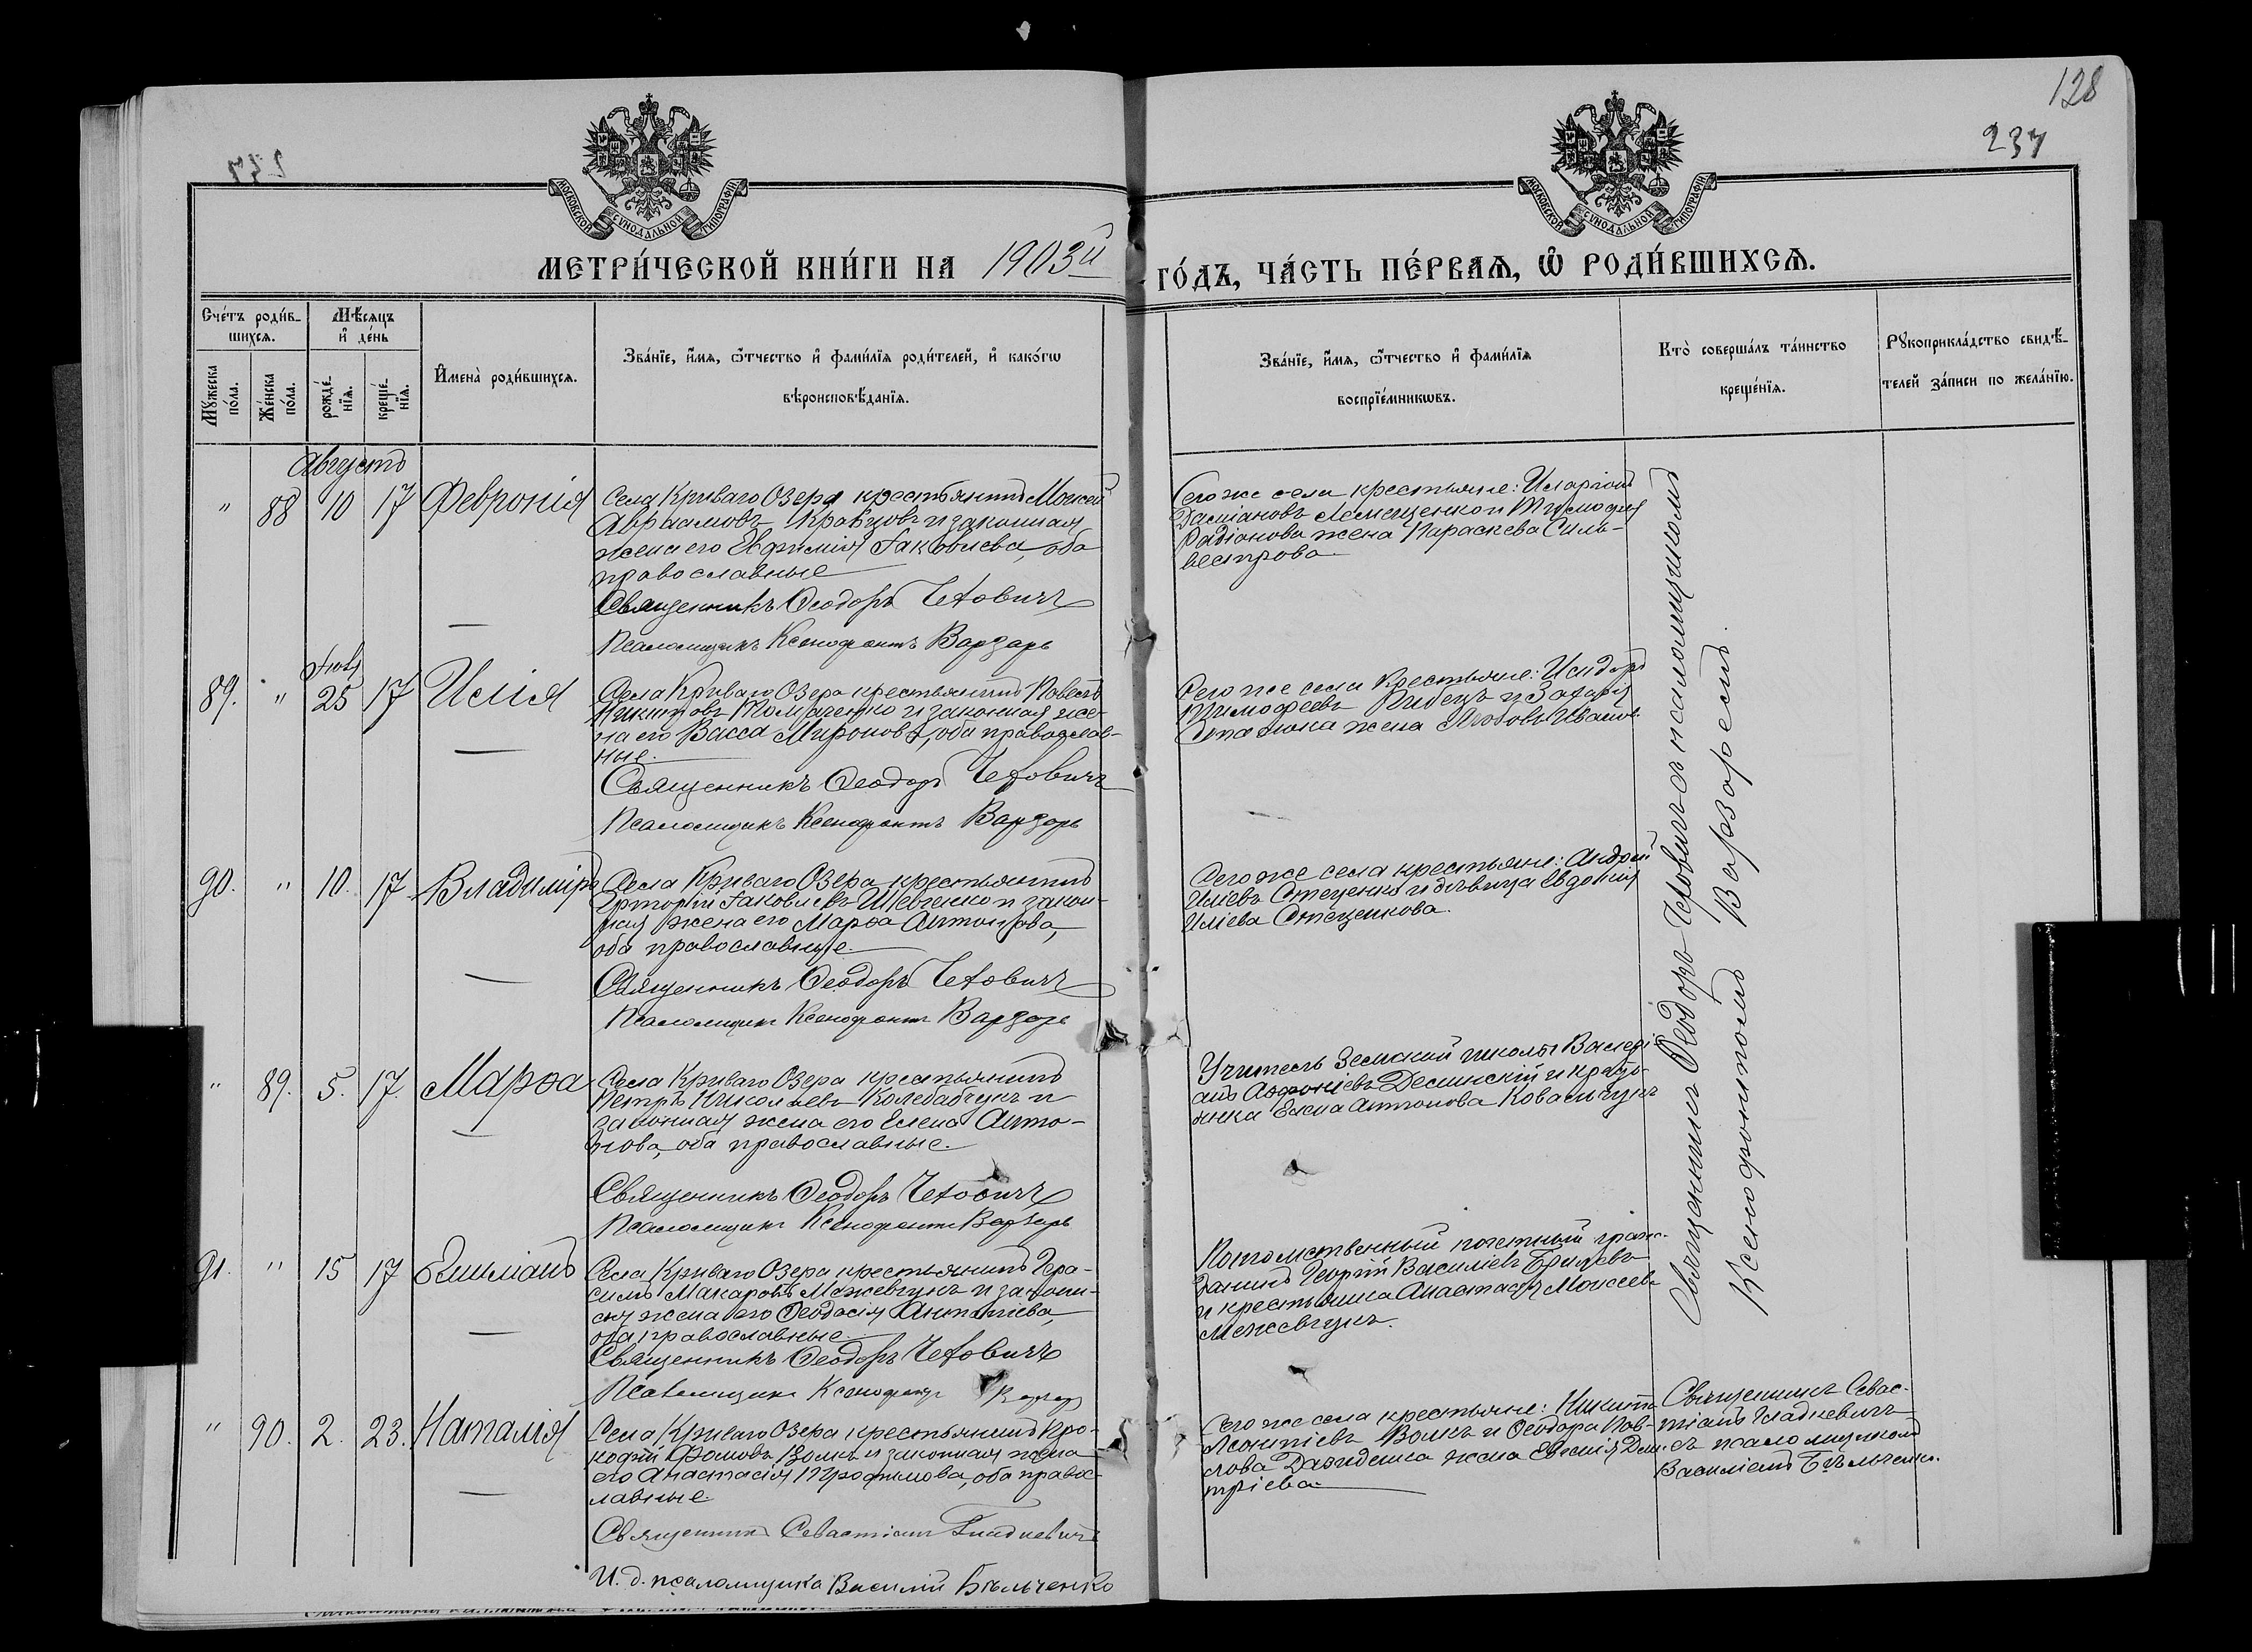 128
237
МОСКОВСКОЙ СѴНОДАЛЬНОЙ ТИПОГРАФІИ
МОСКОВСКОЙ СѴНОДАЛЬНОЙ ТИПОГРАФІИ
МЕТРИ́ЧЕСКОЙ КНИ́ГИ НА 1903й го́дъ, ча́сть пе́рваѧ, ѡ҆ роди́вшихсѧ.
Сче́тъ роди́в-
шихсѧ.
Мѣ́сѧцъ
и҆ де́нь
Мꙋ́жеска
по́ла.
Же́нска
по́ла.
рожде́-
нїѧ.
креще́-
нїѧ.
И҆мена̀ роди́вшихсѧ.
Зва́нїе, и҆́мѧ, ѻ҆́тчество и҆ фами́лїѧ роди́телей, и҆ како́гѡ
вѣроисповѣ́данїѧ.
Зва́нїе, и҆́мѧ, ѻ҆́тчество и҆ фами́лїѧ
воспрїе́мникѡвъ.
Кто̀ соверша́лъ та́инство
креще́нїѧ.
Рꙋкоприкла́дство свидѣ́-
телей за́писи по жела́нїю.
Августъ
" 88 10 17 Февронія
Села Криваго Озера крестьянинъ Моисей
Авраамовъ Кравцовъ и законная
жена его Евфимія Іаковлева, оба
православные
Священникъ Ѳеодоръ Чехович
Псаломщикъ Ксенофонтъ Варзарь
Сего же села крестьяне: Иларіонъ
Даміановъ Лемещенко и Тимофея
Радіонова жена Параскева Силь-
вестрова.
Іюль
89. " 25 17 Илія
Села Криваго Озера крестьянинъ Павелъ
Никитовъ Толмаченко и законная же-
на его Васса Миронова, оба православ-
ные.
Священникъ Ѳеодоръ Чехович
Псаломщикъ Ксенофонтъ Варзарь
Сего же села крестьяне: Исидоръ
Тимофеевъ и Захарія
жена Любовь Иванов.
90. " 10. 17 Владиміръ
Села Криваго Озера крестьянинъ
Григорій Іаковлевъ Шевченко и закон-
ная жена его Марѳа Антонова,
оба православные.
Священникъ Ѳеодоръ Чехович
Псаломщикъ Ксенофонтъ Варзарь
Сего же села крестьяне: Андрей
Иліевъ Стеценко и дѣвица Евдокія
Иліева Стеценкова.
" 89. 5. 17. Марѳа
Села Криваго Озера крестьянинъ
Петръ Николаевъ Колебабчукъ и
законная жена его Елена Анто-
нова, оба православные.
Священникъ Ѳеодоръ Чехович
Псаломщикъ Ксенофонтъ Варзарь
Учитель Земской школы Валері-
анъ Афоніевъ Десинскій и крестья-
янка Елена Антонова Ковальчукъ
91. " 15 17 Емиліанъ
Села Криваго Озера крестьянинъ Гера-
симъ Макаровъ Межевчукъ и закон-
ная жена его Ѳеодосія Антоніева,
оба православные.
Священникъ Ѳеодоръ Чеховичъ
Псаломщикъ Ксенофонтъ Варзарь
Потомственный почетный граж-
данинъ Георгій Василіевъ
и крестьянка Анастасія Моисеева
Межевчукъ.
Священникъ Ѳеодоръ Чеховичъ съ псаломщикомъ
Ксенофонтомъ Варзаремъ.
" 90. 2. 23. Наталія
Села Криваго Озера крестьянинъ Про-
кофій Фомовъ Волкъ и законная жена
его Анастасія Трофимова, оба правос-
лавные.
Священникъ Севастіанъ Гладкевичъ
И. д. псаломщика Василій Бѣльченко
Сего же села крестьяне: Никита
Леонтіевъ Волкъ и Ѳеодора Пав-
лова Давиденка жена Евгенія Дим-
тріева
Священникъ Севас-
тіанъ Гладкевичъ
съ псаломщикомъ
Василіемъ Бѣльченко.